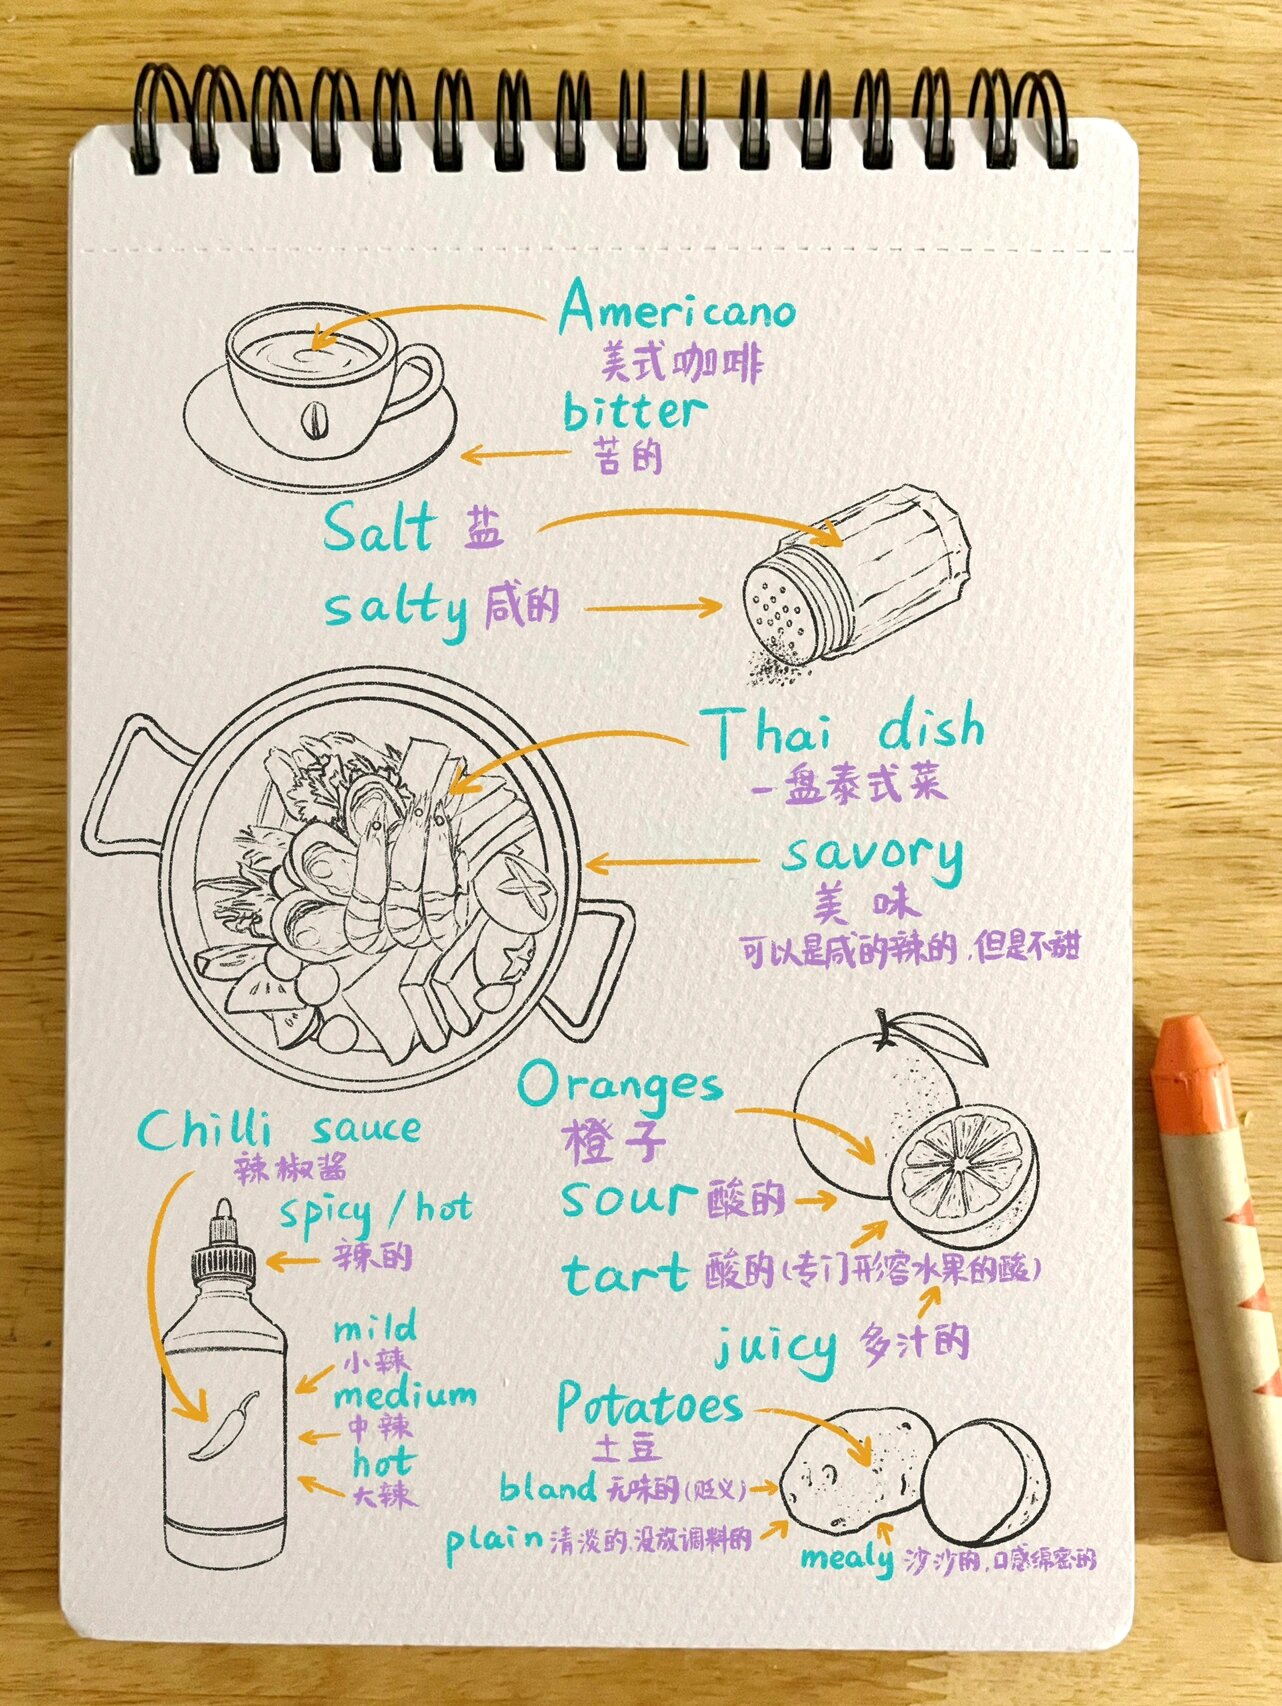 Americano
美式咖啡
bitter
苦的
Salt 盐
salty 咸的
Thai dish
一盘泰式菜
savory
美味
可以是咸的辣的,但是不甜
Oranges
橙子
sour 酸的
tart 酸的(专门形容水果的酸)
juicy 多汁的
Chilli sauce
辣椒酱
spicy / hot
辣的
mild
小辣
medium
中辣
hot
大辣
Potatoes
土豆
bland 无味的(贬义)
plain 清淡的,没放调料的
mealy 沙沙的,口感绵密的